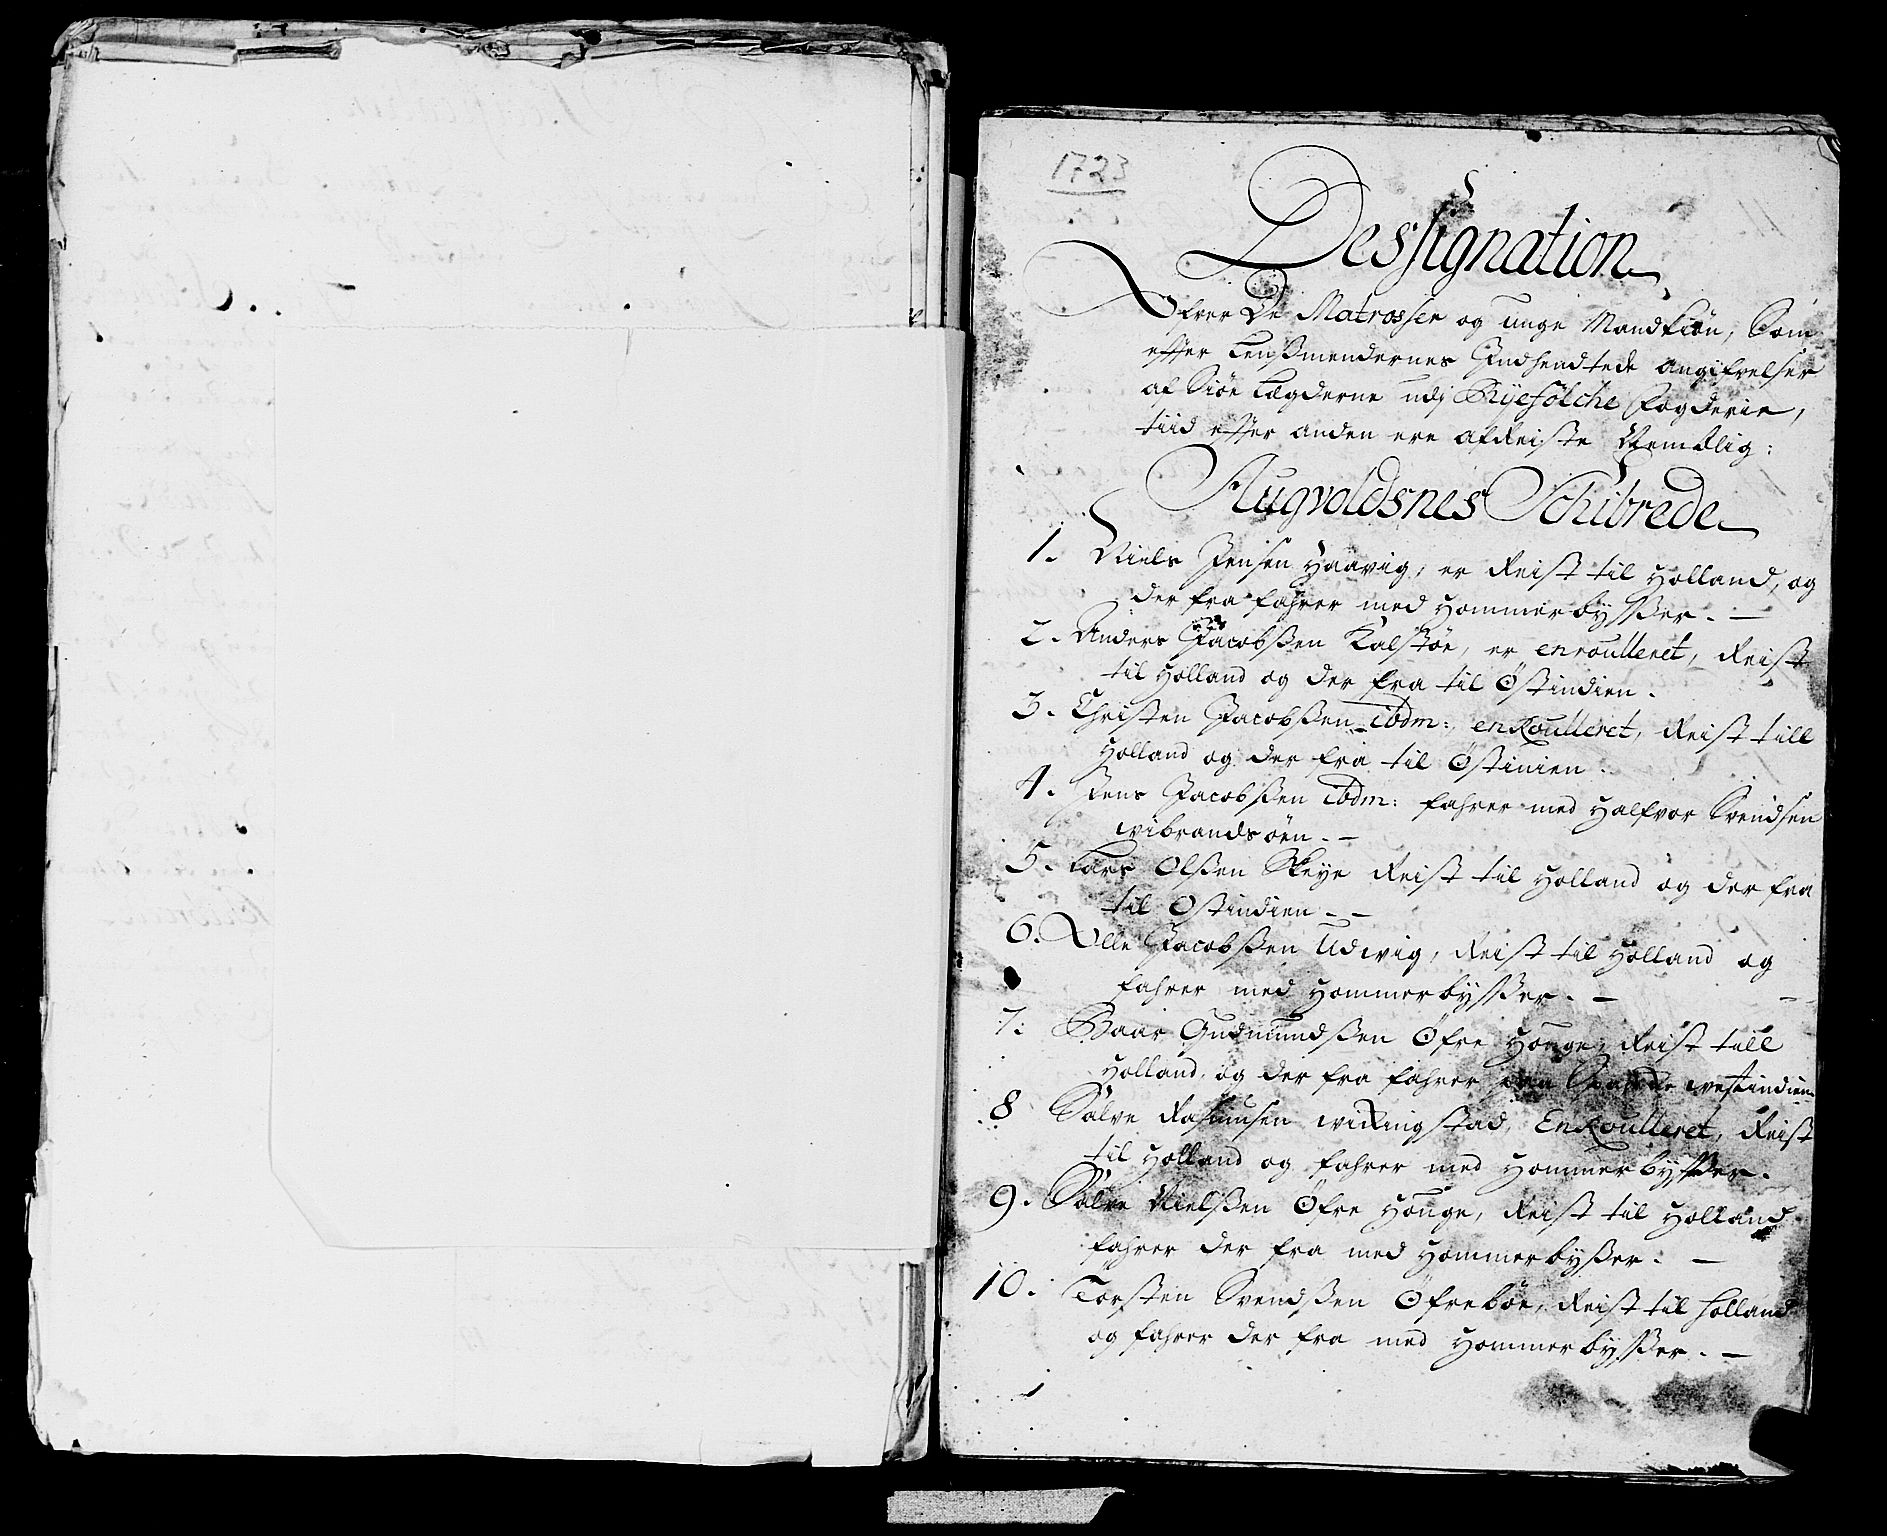 1723
Dessignation
Ofver De Matrosser og unge Mandkiön, Som
efter Lensmendernes Indsendtede angifvelser
af Siöe Lægderne udj Ryefölche Fogderie,
tiid efter anden ere afreiste Nemblig:
Augvoldsnes Schibrede
1. Niels Jensen Haavig, er Reist til Holland, og
der fra fahrer med Hommerbysser. —
2. Anders Jacobsen Kalstöe, er enroulleret, Reist
til Holland og der fra til Östindien.
3. Christen Jacobsen ibdm: enRoulleret, Reist till
Holland og der fra til Östinien.
4. Jens Jacobsen ibdm: fahrer med Halfvor Svendsen
wibrandsöen. —
5. Lars Olsen Skeye Reist til Holland og der fra
til Ostindien. —
6. Olle Jacobsen Udwig, Reist til Holland og
fahrer med Hommerbysser. —
7. Baar Gudmundsen Öfre Houge, Reist till
Holland, og der fra fahrer paa westindien
8 Sölve Rasmusen wiRingstad, EnRoulleret, Reist
til Holland og fahrer med Hommerbysser.
9. Sölve Nielsen Öfre Houge, Reist til Holland
fahrer der fra med Hommerbysser. —
10. Torsten Svendsen Öfreböe, Reist til Holland
og fahrer der fra med Hommerbysser. —